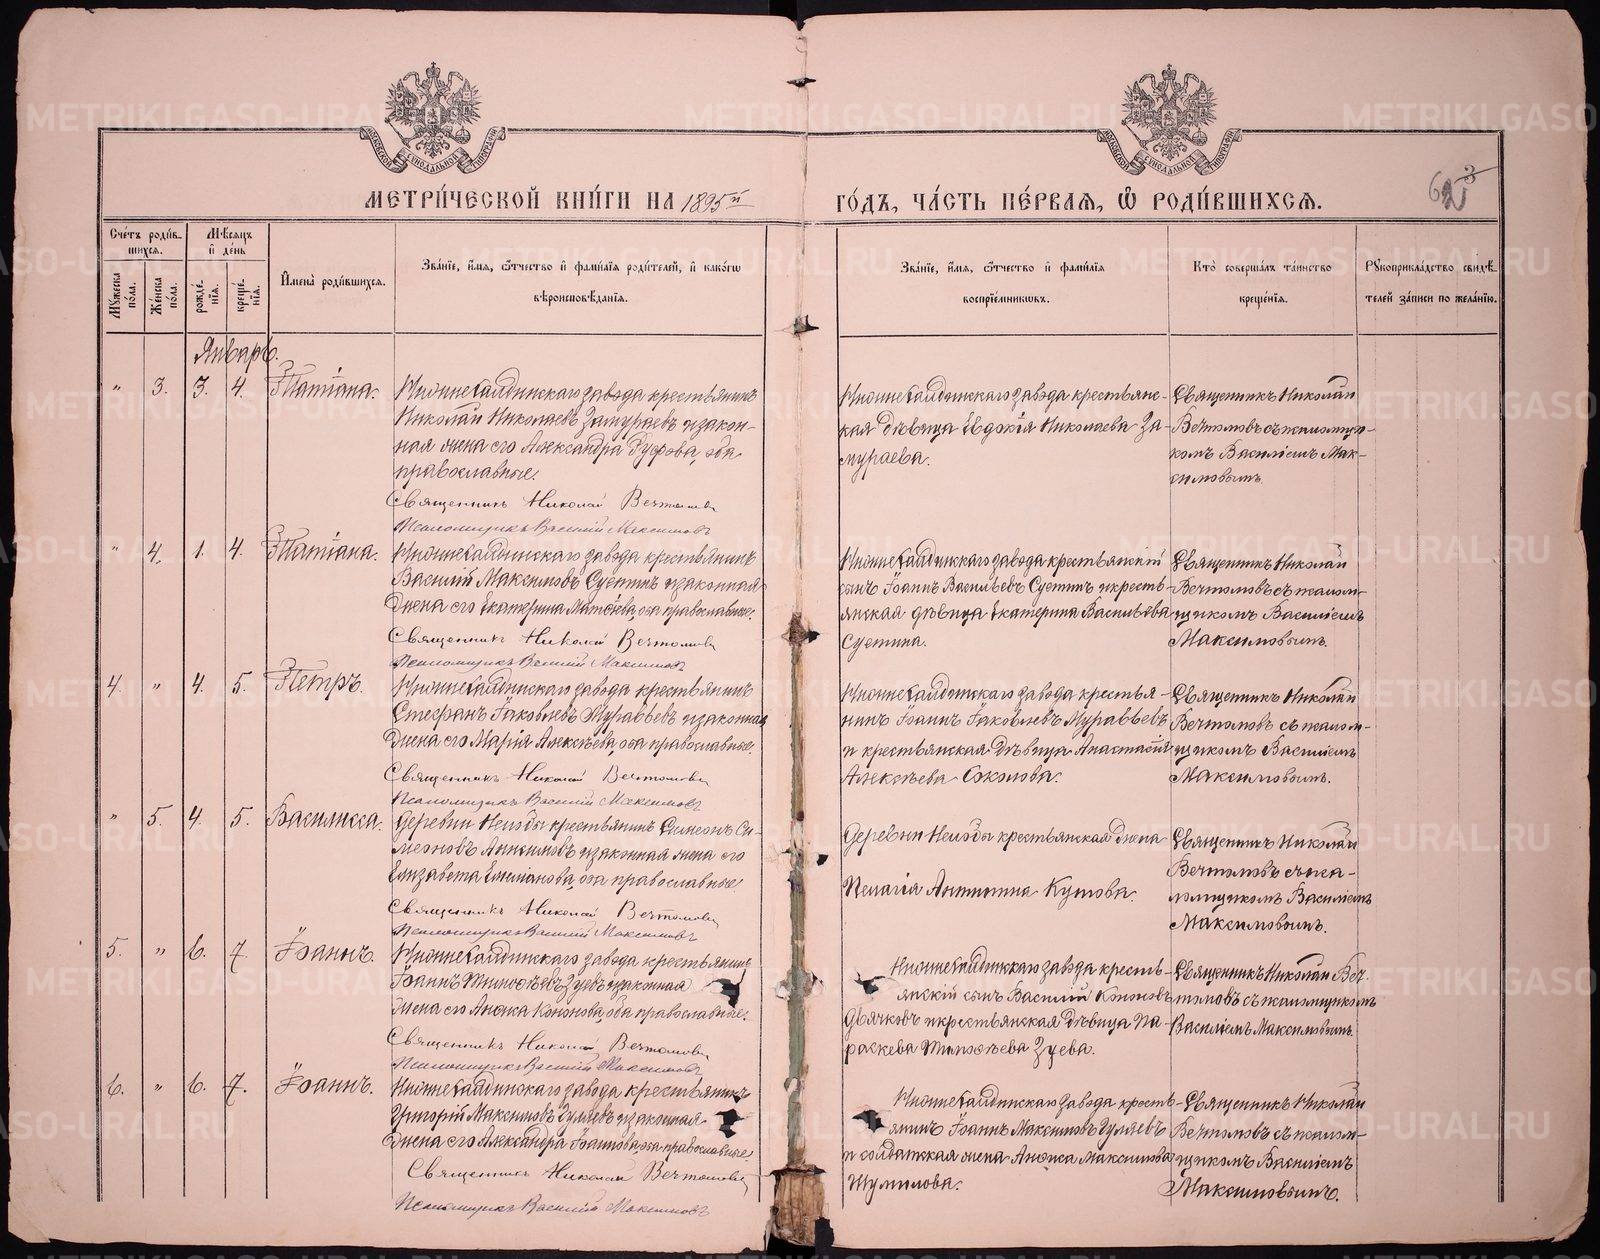 МОСКОВСКОЙ СѴНОДАЛЬНОЙ ТИПОГРАФІИ
МОСКОВСКОЙ СѴНОДАЛЬНОЙ ТИПОГРАФІИ
МЕТРИ́ЧЕСКОЙ КНИ́ГИ НА 1895й
ГО́ДЪ, ЧА́СТЬ ПЕ́РВАЯ, Ѡ҆ РОДИ́ВШИХСЯ.
Сче́тъ роди́в-
шихся.
Му́жеска по́ла.
Же́нска по́ла.
Мѣ́сяцъ
и҆ де́нь
рожде́нїя.
креще́нїя.
И҆мена̀ роди́вшихся.
Зва́нїе, и҆́мя, ѻ҆́тчество и҆ фами́лїя роди́телей, и҆ како́гѡ
вѣроисповѣ́данїя.
Зва́нїе, и҆́мя, ѻ҆́тчество и҆ фами́лїя
воспрїе́мниковъ.
Кто̀ соверша́лъ та́инство
креще́нїя.
Рꙋкоприкла́дство свидѣ́-
телей за́писи по жела́нїю.
Январь.
" 3. 3. 4. Татіана.
Нижнесалдинскаго завода крестьянинъ
Николай Николаевъ Замураевъ изакон-
ная жена его Александра Руфова, оба
православные.
Священникъ Николай Вечтомовъ
Псаломщикъ Василий Максимовъ
Нижнесалдинскаго завода крестьянс-
кая дѣвица Евдокія Николаева За-
мураева.
Священникъ Николай
Вечтомовъ съ псаломщи-
комъ Василіемъ Мак-
симовымъ
" 4. 1. 4. Татіана.
Нижнесалдинскаго завода крестьянинъ
Василій Максимовъ Суетинъ изаконная
жена его Екатерина Матѳеева, оба православные.
Священникъ Николай Вечтомовъ
Псаломщикъ Василий Максимовъ
Нижнесалдинскаго завода крестьянскій
сынъ Іоаннъ Васильевъ Суетинъ икресть-
янская дѣвица Екатерина Васильева
Суетина.
Священникъ Николай
Вечтомовъ съ псалом-
щикомъ Василіемъ
Максимовымъ.
4. " 4. 5. Петръ.
Нижнесалдинскаго завода крестьянинъ
Стефанъ Іаковлевъ Муравьевъ изаконная
жена его Марія Алексѣева, оба православные.
Священникъ Николай Вечтомовъ
Псаломщикъ Василий Максимовъ
Нижнесалдинскаго завода крестья-
нинъ Іоаннъ Іаковлевъ Муравьевъ
и крестьянская дѣвица Анастасія
Алексѣева Соколова.
Священникъ Николай
Вечтомовъ съ псалом-
щикомъ Василіемъ
Максимовымъ.
" 5. 4. 5. Василисса.
Деревни Нелобы крестьянинъ Симеонъ Си-
меоновъ Анисимовъ изаконная жена его
Елизавета Емелианова, оба православные
Священникъ Николай Вечтомовъ
Псаломщикъ Василий Максимовъ
Деревни Нелобы крестьянская жена
Пелагія Антипина Кутова.
Священникъ Николай
Вечтомовъ съ пса-
ломщикомъ Василіемъ
Максимовымъ.
5. " 6. 7. Іоаннъ.
Нижнесалдинскаго завода крестьянинъ
Іоаннъ Тимоѳеевъ Зуевъ изаконная
жена его Анѳиса Кононова, оба православные.
Священникъ Николай Вечтомовъ
Псаломщикъ Василий Максимовъ
Нижнесалдинскаго завода кресть-
янскій сынъ Василій Кононовъ
Дьячковъ икрестьянская дѣвица Па-
раскева Тимоѳеева Зуева.
Священникъ Николай Веч-
томовъ съ псаломщикомъ
Василіемъ Максимовымъ.
6. " 6. 7. Іоаннъ.
Нижнесалдинскаго завода крестьянинъ
Григорій Максимовъ Гуляевъ изаконная
жена его Александра Іоаннова, оба православные.
Священникъ Николай Вечтомовъ
Псаломщикъ Василий Максимовъ
Нижнесалдинскаго завода кресть-
янинъ Іоаннъ Максимовъ Гуляевъ
и солдатская жена Анѳиса Максимова
Шумилова.
Священникъ Николай
Вечтомовъ съ псалом-
щикомъ Василіемъ
Максимовымъ.
METRIKI.GASO-URAL.RU